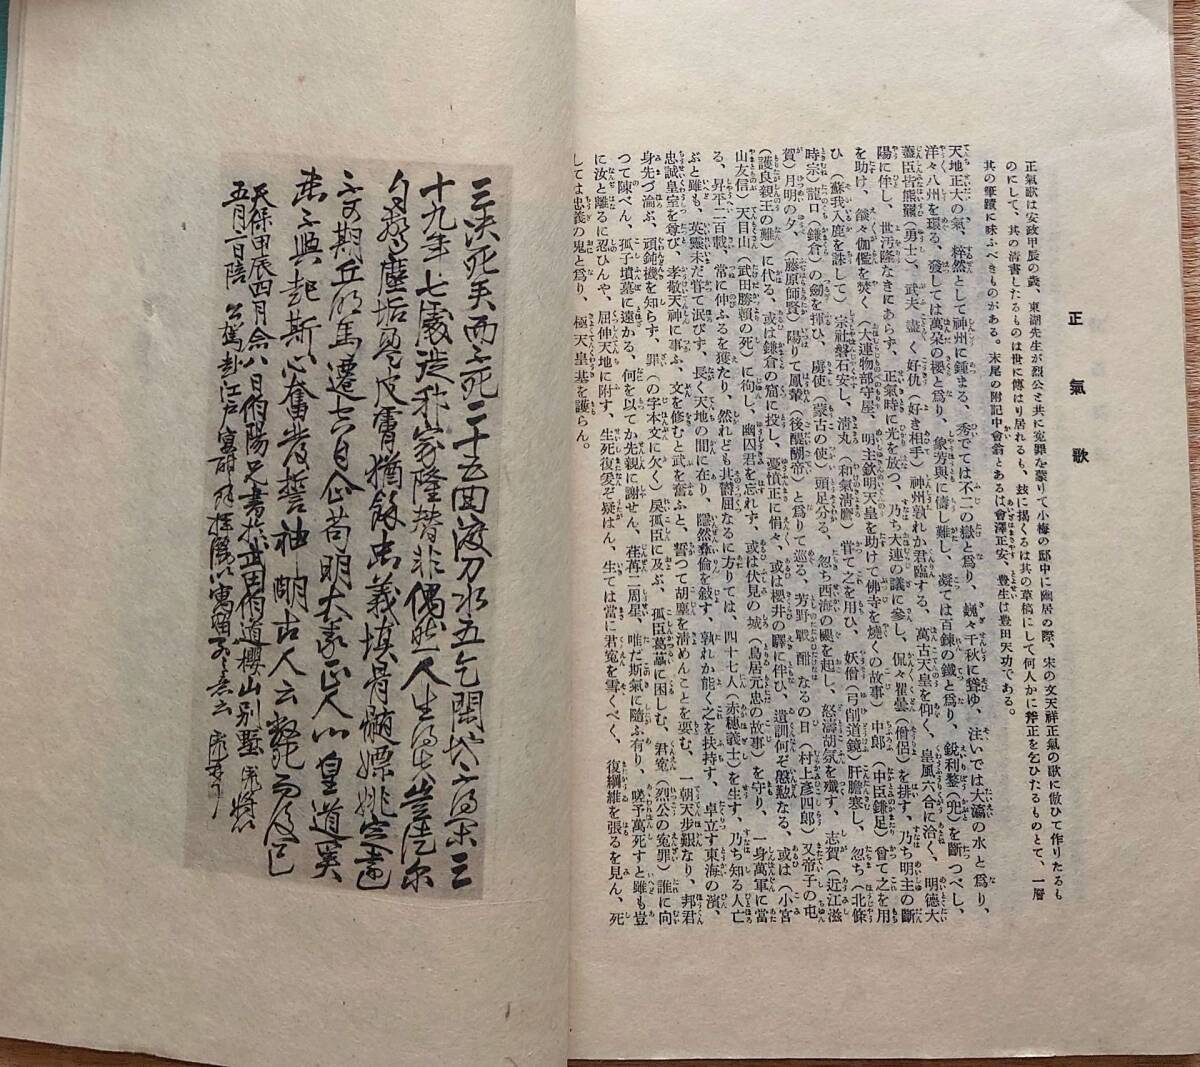 正氣歌
正氣歌は安政甲辰の歲、東湖先生が烈公と共に寃罪を蒙りて小梅の邸中に幽居の際、宋の文天祥正氣の歌に倣ひて作りたるも
のにして、其の淸書したるものは世に傳はり居れるも、玆に揭くるは其の草稿にして何人かに斧正を乞ひたるものとて、一層
其の筆蹟に味ふべきものがある。末尾の附記中會翁とあるは會澤正安、豊生は豊田天功である。
天地正大の氣、粹然として神州に鍾まる、秀でては不二の嶽と爲り、巍々千秋に聳ゆ、注いでは大瀛の水と爲り、
洋々八州を環る、發しては萬朶の櫻と爲り、衆芳與に儔し難し、凝ては百鍊の鐵と爲り、銳利鍪(兜)を斷つべし、
藎臣皆熊羆(勇士)、武夫盡く好仇(好き相手)神州孰れか君臨する、萬古天皇を仰ぐ、皇風六合に洽く、明德大
陽に侔し、世汚隆なきにあらず、正氣時に光を放つ、乃ち大連の議に參し、侃々瞿曇(僧侶)を排す、乃ち明主の斷
を助け、燄々伽藍を焚く(大連物部守屋、明主欽明天皇を助けて佛寺を燒くの故事)中郎(中臣鎌足)曾て之を用
ひ(蘇我入鹿を誅して)宗社磐石安し、淸丸(和氣淸麿)甞て之を用ひ、妖僧(弓削道鏡)肝膽寒し、忽ち(北條
時宗)龍口(鎌倉)の劒を揮ひ、虜使(蒙古の使)頭足分る、忽ち西海の颶を起し、怒濤胡氛を殲す、志賀(近江滋
賀)月明の夕、(藤原師賢)陽りて鳳輦(後醍醐帝)と爲りて巡る、芳野戰酣なるの日(村上彥四郎)又帝子の屯
(護良親王の難)に代る、或は鎌倉の窟に投し、憂憤正に悁々、或は櫻井の驛に伴ひ、遺訓何ぞ慇懃なる、或は(小宮
山友信)天目山(武田勝賴の死)に徇し、幽囚君を忘れず、或は伏見の城(鳥居元忠の故事)を守り、一身萬軍に當
る、昇平二百載、常に伸ふるを獲たり、然れども共欝屈なるに方りては、四十七人(赤穗義士)を生す、乃ち知る人亡
ぶと雖も、英靈未だ甞て泯びず、長く天地の間に在り、隱然彝倫を敍す、孰れか能く之を扶持す、卓立す東海の濱、
忠誠皇室を尊び、孝敬天神に事ふ、文を修むと武を奮ふと、誓つて胡塵を淸めんことを要む、一朝天步艱なり、邦君
身先づ淪ぶ、頑鈍機を知らず、罪(の字本文に欠く)戾孤臣に及ぶ、孤臣葛藟に困しむ、君寃(烈公の寃罪)誰に向
つて陳べん、孤子墳墓に遠かる、何を以てか先親に謝せん、荏苒二周星、唯だ斯氣に隨ふ有り、嗟予萬死すと雖も豈
に汝と離るに忍ひんや、屈伸天地に附す、生死復奚ぞ疑はん、生ては當に君寃を雪くべく、復綱維を張るを見ん、死
しては忠義の鬼と爲り、極天皇基を護らん。
三决死矣而不死二十五回渡刀水五乞閑地不得閑三
十九年七處徙邦家隆替非偶然人生得失豈徒爾
自驚塵垢盈皮膚猶餘忠義填骨髓嫖姚定遠
不可期丘明馬遷空自企苟明大義正人心皇道奚
患不興起斯心奮發誓神明古人云斃而後已
天保甲辰四月念八日伯陽兄書於武田伯道櫻山別墅
五月二日陪公駕赴江戶